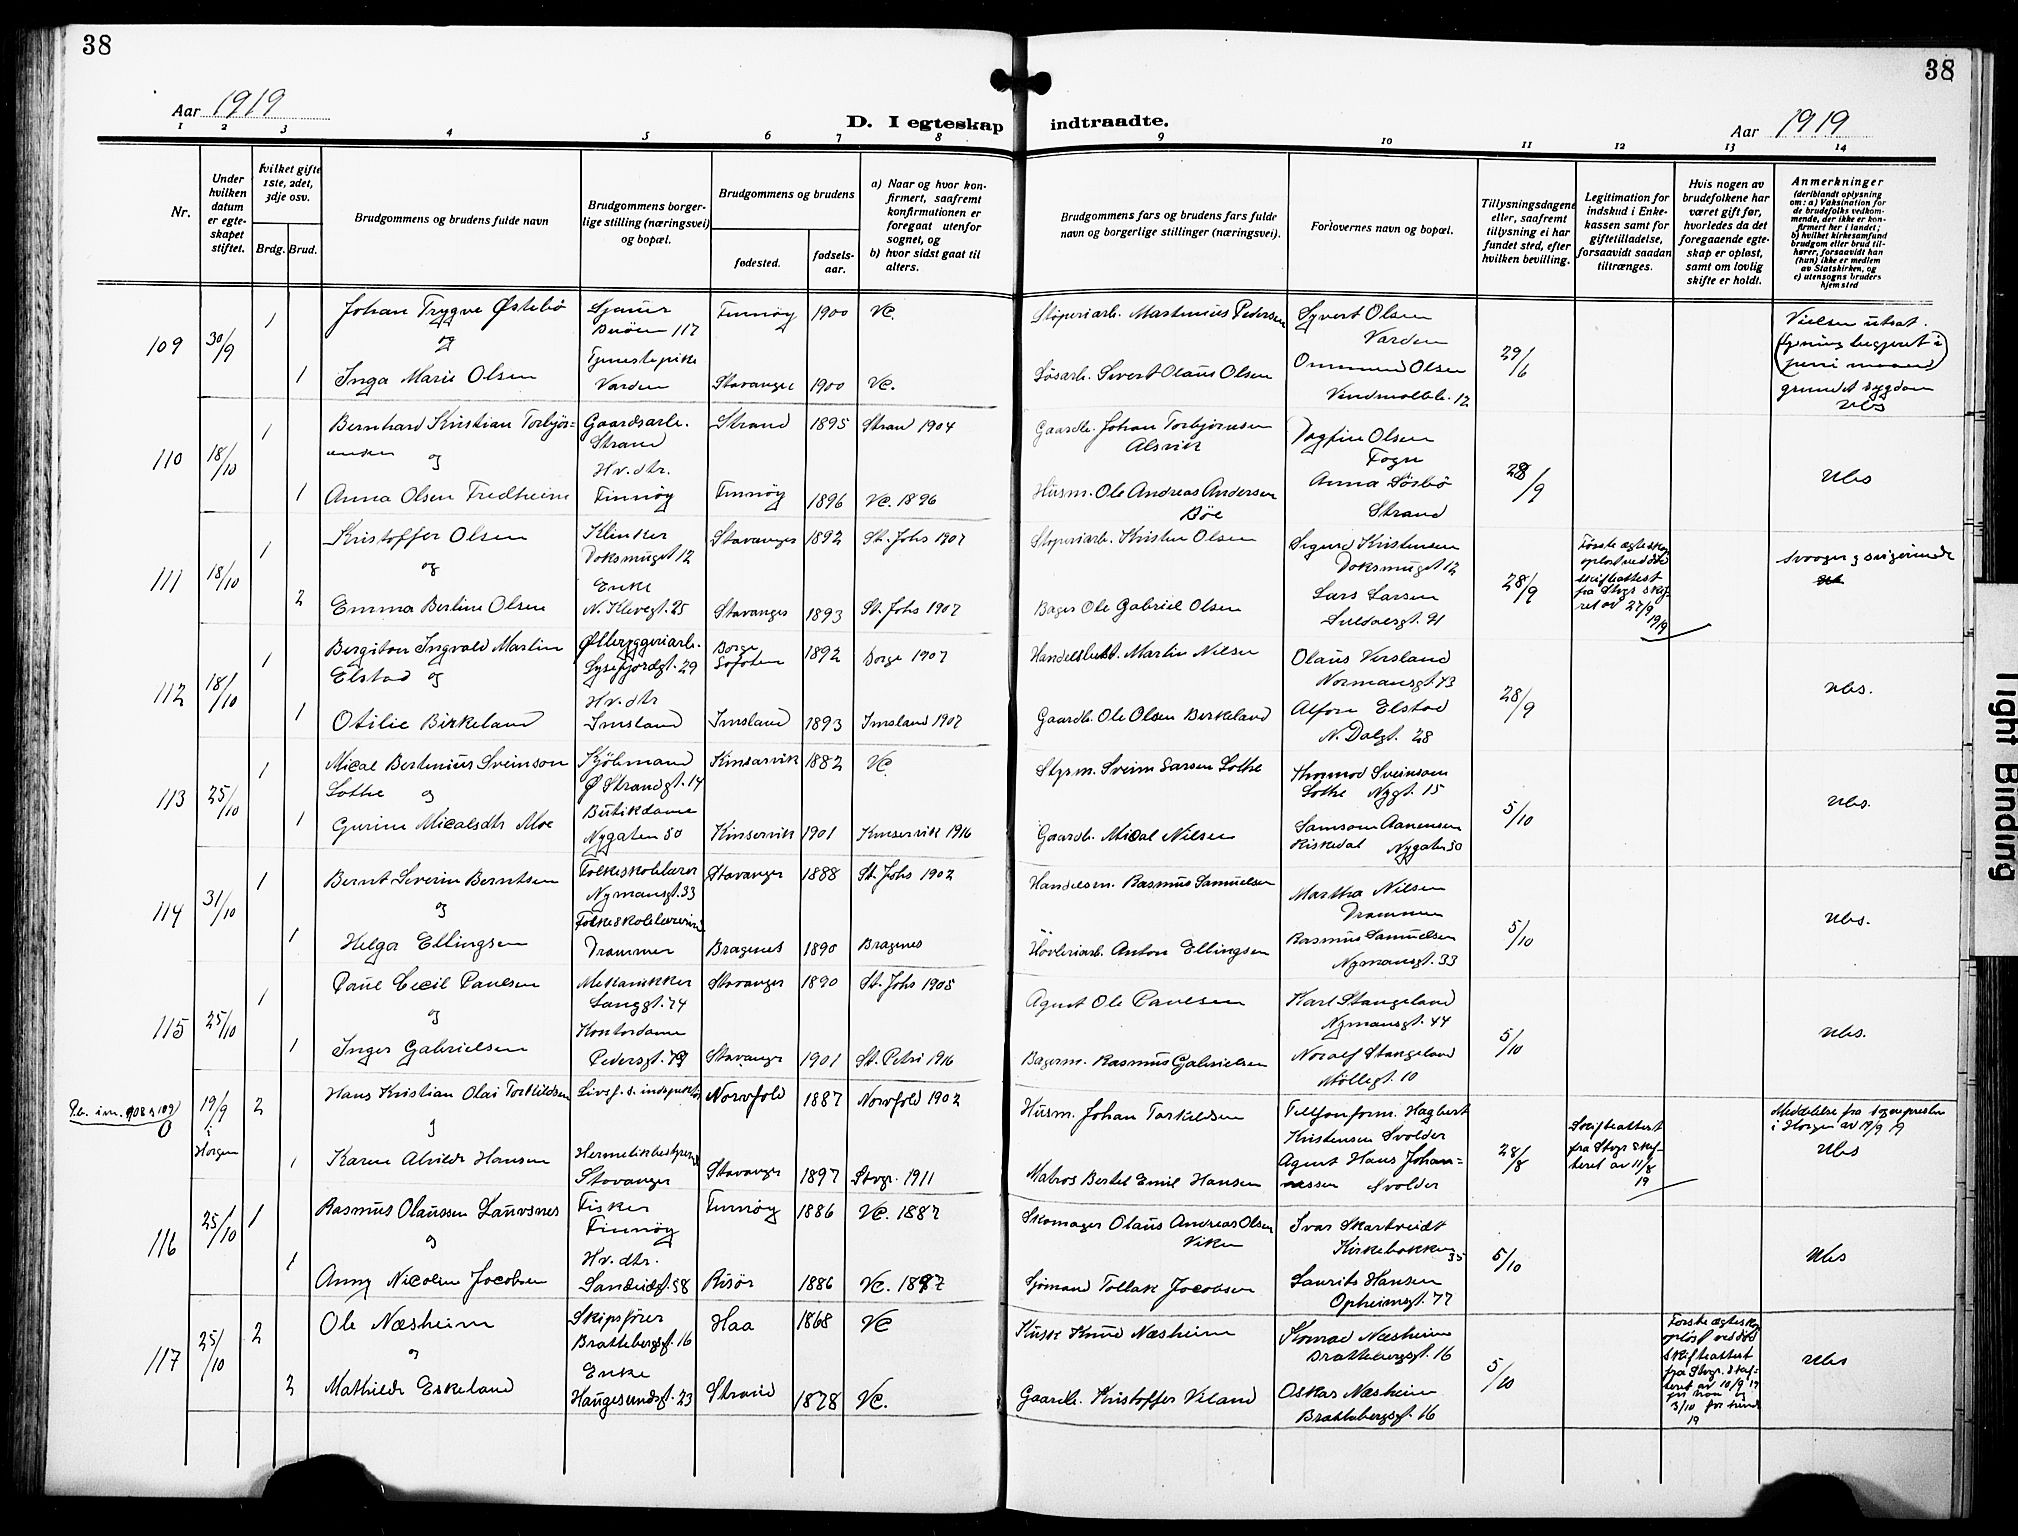 38
38
Aar 1919
D. I egteskap indtraadte.
Aar 1919
1 2 3 4 5 6 7 8 9 10 11 12 13 14
Nr.
Under hvilken datum er egteskapet stiftet.
hvilket gifte 1ste, 2det, 3dje osv.
Brdg. Brud.
Brudgommens og brudens fulde navn
Brudgommens borgerlige stilling (næringsvei) og bopæl.
Brudgommens og brudens
fødested.
fødselsaar.
a) Naar og hvor konfirmert, saafremt konfirmationen er foregaat utenfor sognet, og
b) hvor sidst gaat til alters.
Brudgommens fars og brudens fars fulde navn og borgerlige stillinger (næringsvei).
Forlovernes navn og bopæl.
Tillysningsdagene eller, saafremt tillysning ei har fundet sted, efter hvilken bevilling.
Legitimation for indskud i Enkekassen samt for giftetilladelse, forsaavidt saadan tiltrænges.
Hvis nogen av brudefolkene har været gift før, hvorledes da det foregaaende egteskap er opløst, samt om lovlig skifte er holdt.
Anmerkninger
(deriblandt oplysning om: a) Vaksination for de brudefolks vedkommende, der ikke er konfirmert her i landet; b) hvilket kirkesamfund brudgom eller brud tilhører, forsaavidt han (hun) ikke er medlem av Statskirken, og c) utensogns bruders hjemsted
109 30/9 1 Johan Trygve Østebø Sjauer Finnøy 1900 Vc. Støperiarb. Martinius Pedersen Syvert Olsen 29/6 Vielsen utsat.
og Buøen 117 Varden
1 Inga Marie Olsen Tjenestepike Varden Stavanger 1900 Vc. Løsarb. Sivert Olaus Olsen Ommund Olsen
Vindmølleb. 12 grundet sygdom
Ubs
110 18/10 1 Bernhard Kristian Torbjørnsen Gaardsarb. Strand 1895 Strand 1904 Gaardb. Johan Torbjørnsen Dagfin Olsen 28/9 Ubs
og Strand Alsvik Fogn
1 Anna Olsen Fredheim Hv. dtr. Finnøy Finnøy 1896 Vc. 1896 Husm. Ole Andreas Andersen Anna
Bøe Strand
111 18/10 1 Kristoffer Olsen Klinker Stavanger 1892 St. Johs 1907 Støperiarb. Kristen Olsen Sigurd Kristensen 28/9 Første ægteskap opløst ved død skifteattest fra Stvgr skifteret av 27/9 1919 Svoger og svigerinde
og Doksmuget 12 Doksmuget 12
2 Emma Bertine Olsen Enke N. Klevegt. 25 Stavanger 1893 St. Johs 1907 Bager Ole Gabriel Olsen Lars Larsen
Suldalsgt. 91
112 18/10 1 Bergiton Ingvald Martin Ølbryggeriarb. Borge 1892 Borge 1907 Handelsbest. Martin Nilsen Olaus Virsland 28/9 Ubs.
Elstad og Lysefjordgt. 29 Lofoten Normansgt. 43
1 Otilie Birkeland Hv. dtr Imsland Imsland 1893 Imsland 1907 Gaardb. Ole Olsen Berkeland Alfon Elstad
N. Dalgt. 28
113 25/10 1 Mical Bertinius Sveinson Kjøbmand Kinsarvik 1882 Vc. Styrm. Svein Larsen Lothe Thormod Sveinson 5/10 Ubs.
Lothe og Ø Strandgt. 14 Lothe Nygt. 15
1 Gurine Micalsdtr Moe Butikdame Nygaten 50 Kinservik 1901 Kinservik 1916 Gaardb. Mical Nilsen Samson Aanensen
Kiskedal Nygaten 50
114 31/10 1 Bernt Severin Berntsen Folkeskolelærer Stavanger 1888 St. Johs 1902 Handelsm. Rasmus Samuelsen Martha Nilsen 5/10 Ubs.
og Nymansgt. 33 Drammen
1 Helga Ellingsen Folkeskolelærerinde Drammen Bragenes 1890 Bragenes Høvleriarb. Anton Ellingsen Rasmus Samuelsen
Nymansgt. 33
115 25/10 1 Paul Cecil Paulsen Mekanikker Stavanger 1890 St. Johs 1905 Agent Ole Paulsen Karl Stangeland 5/10 Ubs.
og Langgt. 74 Nymansgt. 44
1 Inger Gabrielsen Kontordame Pedersgt. 79 Stavanger 1901 St. Petri 1916 Bagerm. Rasmus Gabrielsen Noralf Stangeland
Møllegt. 10
19/9 i Horgen 2 Hans Kristian Olai Torkildsen Livsf. s. inspektør Norvfold 1887 Norvfold 1902 Husm. Johan Torkeldsen Telefonform. Hagbert 28/8 Skifteattest fra Stvgr skifteret av 11/8 19 Meddelelse fra sognepresten i Horgen av 19/9 19
og Kristensen Svolder Ubs
1 Karen Alvilde Hansen Stavanger Stavanger 1897 Stvgr. 1911 Matros Bertel Emil Hansen Agent Hans Johannessen Svolder
116 25/10 1 Rasmus Olaussen Lauvsnes Fisker Finnøy 1886 Vc. 1887 Skomager Olaus Andreas Olsen Ivar Skartveidt 5/10 Ubs
og Finnøy Viken Kirkebakken 35
1 Anny Nicoline Jacobsen Hv. dtr. Sandeidgt. 58 Risør 1886 Vc. 1887 Sjømand Tollak Jacobsen Laurits Hansen
Opheimsgt. 77
117 25/10 2 Ole Næsheim Skipsfører Haa 1868 Vc Kusk Knud Næsheim Konrad Næsheim 5/10 Første ægteskap opløst ved død Skifteattest fra Stvgr. skifteret av 10/9 19 for ham og 3/10 19 for hende Ubs
og Brattebergsgt. 16 Brattebergsgt. 16
2 Mathilde Eskeland Enke Haugesundsgt. 23 Strand 1878 Vc. Gaardb. Kristoffer Veland Oskar Næsheim
Brattebergsgt. 16
Tight Binding